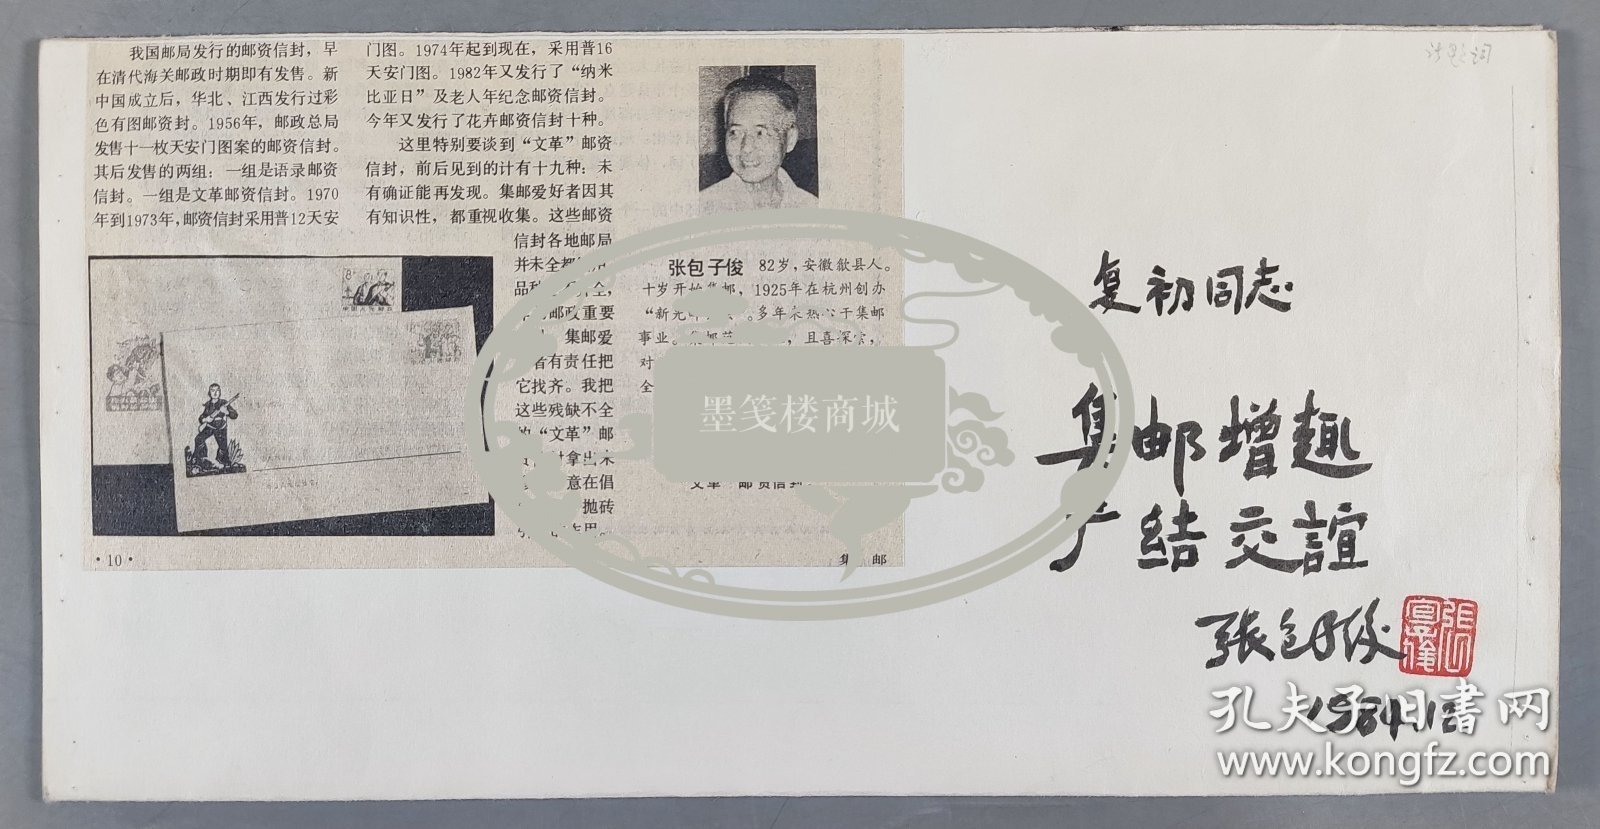 我国邮局发行的邮资信封，早
在清代海关邮政时期即有发售。新
中国成立后，华北、江西发行过彩
色有图邮资封。1956年，邮政总局
发售十一枚天安门图案的邮资信封。
其后发售的两组：一组是语录邮资
信封。一组是文革邮资信封。1970
年到1973年，邮资信封采用普12天安
门图。1974年起到现在，采用普16
天安门图。1982年又发行了“纳米
比亚日”及老人年纪念邮资信封。
今年又发行了花卉邮资信封十种。
这里特别要谈到“文革”邮资
信封，前后见到的计有十九种：未
有确证能再发现。集邮爱好者因其
有知识性，都重视收集。这些邮资
信封各地邮局
并未全都
品种
邮政重要
集邮爱
者有责任把
它找齐。我把
这些残缺不全
的“文革”邮
拿出来
意在倡
抛砖
张包子俊 82岁，安徽歙县人。
十岁开始集邮，1925年在杭州创办
“新光 。多年来热心于集邮
事业。集邮 ，且喜探索，
对
全
文革 邮资信封
·10·
集 邮
复初同志
集邮增趣
广结交谊
张包子俊
1984.12
墨笺楼商城
孔夫子旧书网
www.kongfz.com